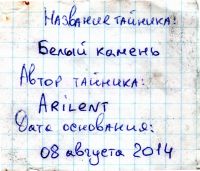 Название тайника:
Белый камень
Автор тайника:
ARILENT
Дата основания:
08 августа 2014